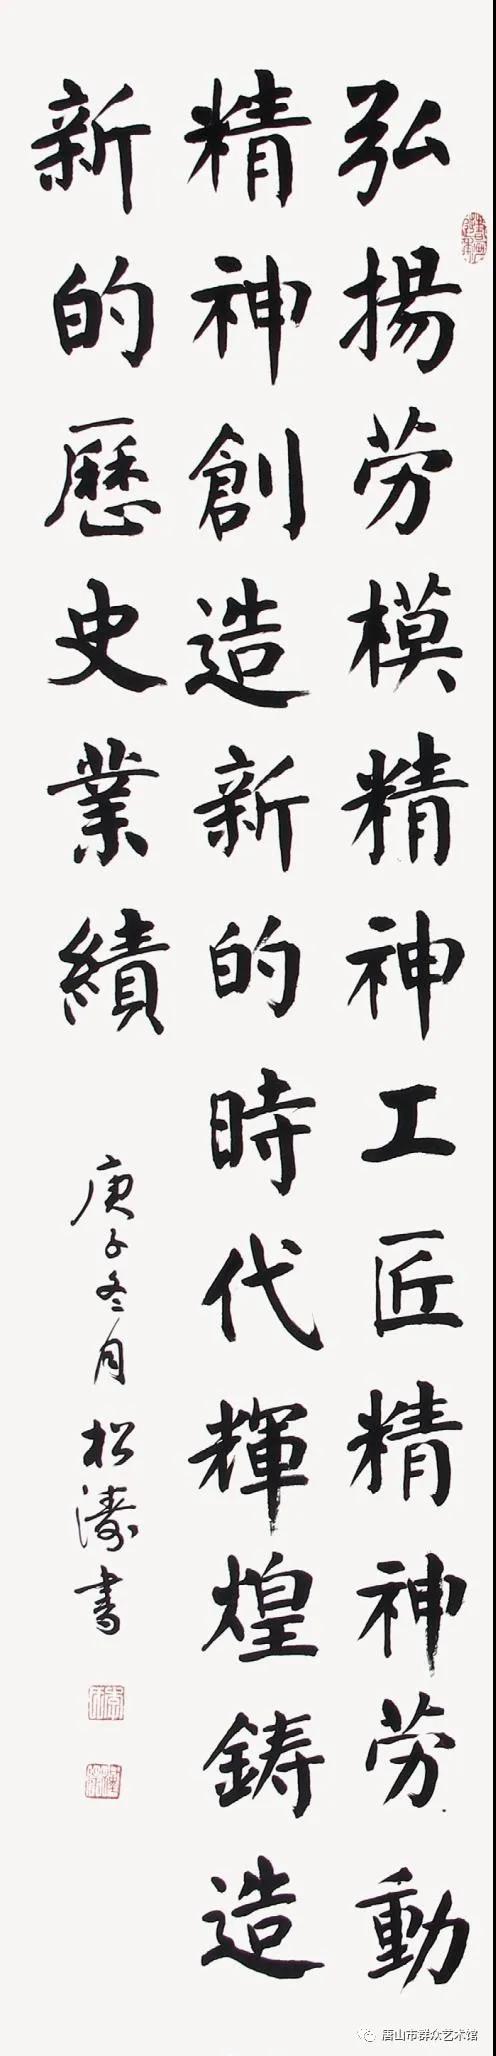 弘揚劳模精神工匠精神劳動
精神創造新的時代輝煌鋳造
新的歷史業績
庚子冬月松濤書
唐山市群众艺术馆